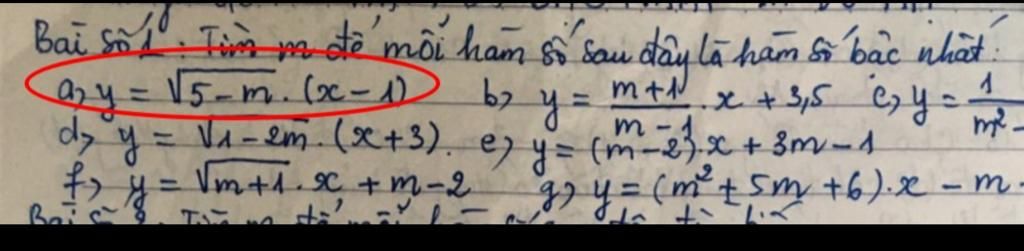 Bài số 1: Tìm m để mỗi hàm số sau đây là hàm số bậc nhất:
a, y = √5-m . (x-1) b, y = m+1/m-1 . x + 3,5 c, y = 1/m²-
d, y = √1-2m . (x+3). e, y = (m-2).x + 3m-1
f, y = √m+1 . x + m-2 g, y = (m²+5m+6).x - m